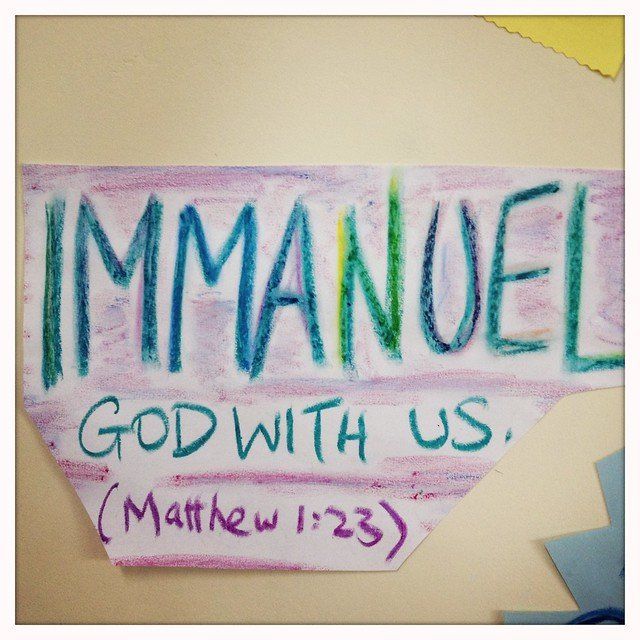 IMMANUEL
GOD WITH US.
(Matthew 1:23)